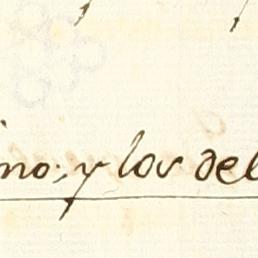 no; y los del